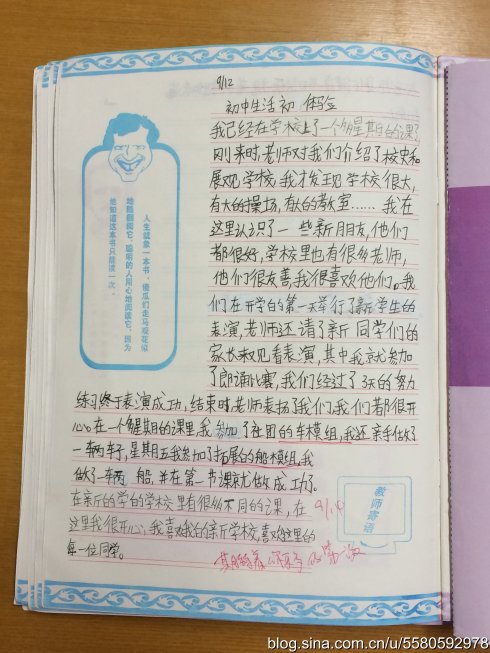 9/12
初中生活初体验
我已经在学校上了一个多星期的课了
刚来时,老师对我们介绍了校史和
展观学校,我才发现学校很大,
有大的操场,有大的教室……我在
这里认识了一些新朋友,他们
都很好,学校里也有很多老师,
他们很友善,我很喜欢他们。我
们在开学的第一天举行了新学生的
表演,老师还请了新同学们的
家长来观看表演,其中我就参加
了朗诵比赛,我们经过了3天的努力
练习终于表演成功,结束时老师表扬了我们,我们都很开
心。在一个星期的课里,我参加了社团的车模组,我还亲手做了
一辆车子,星期五我参加了拓展的船模组。我
做了一辆船,并在第一节课就做成功了。
在新的学的学校里有很多不同的课,在
这里我很开心,我喜欢我的新学校,喜欢这里的
每一位同学。
人生就象一本书,傻瓜们走马观花似
地随手翻阅它,聪明的人用心地阅读它,因为
他知道这本书只能读一次。
9/14
教师寄语
blog.sina.com.cn/u/5580592978